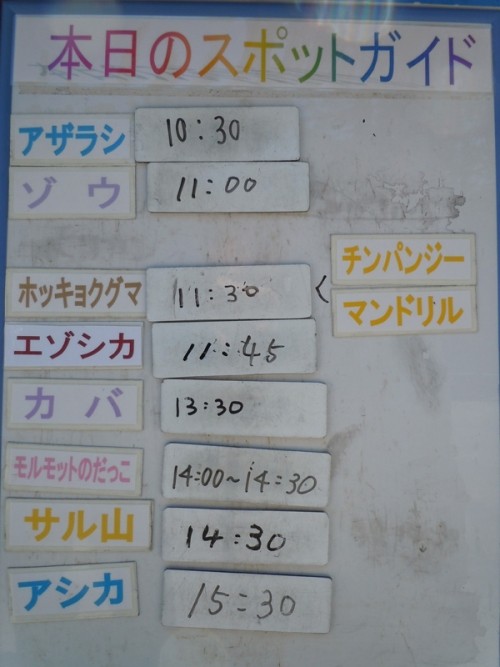 本日のスポットガイド
アザラシ 10:30
ゾウ 11:00
チンパンジー
ホッキョクグマ 11:30 <
マンドリル
エゾシカ 11:45
カバ 13:30
モルモットのだっこ 14:00~14:30
サル山 14:30
アシカ 15:30